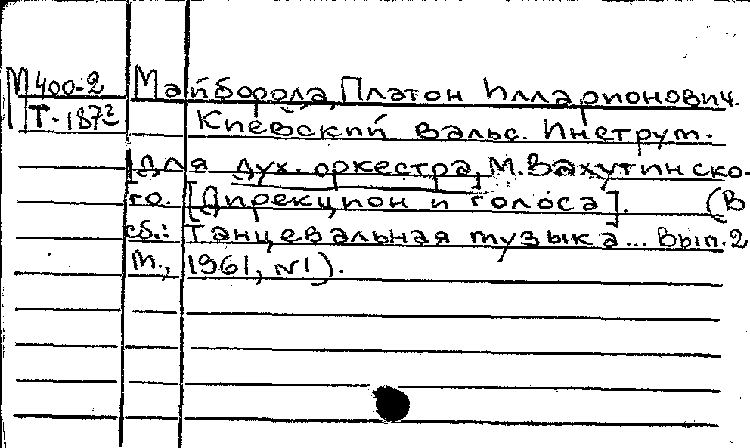 М 400-2 Майборода, Платон Илларионович.
Т-187² Киевский вальс. Инструм.
[для дух. оркестра, М. Вахутинско-
го. [Дирекцион и голоса]. (В
сб.: Танцевальная музыка... Вып. 2
М., 1961, №1).